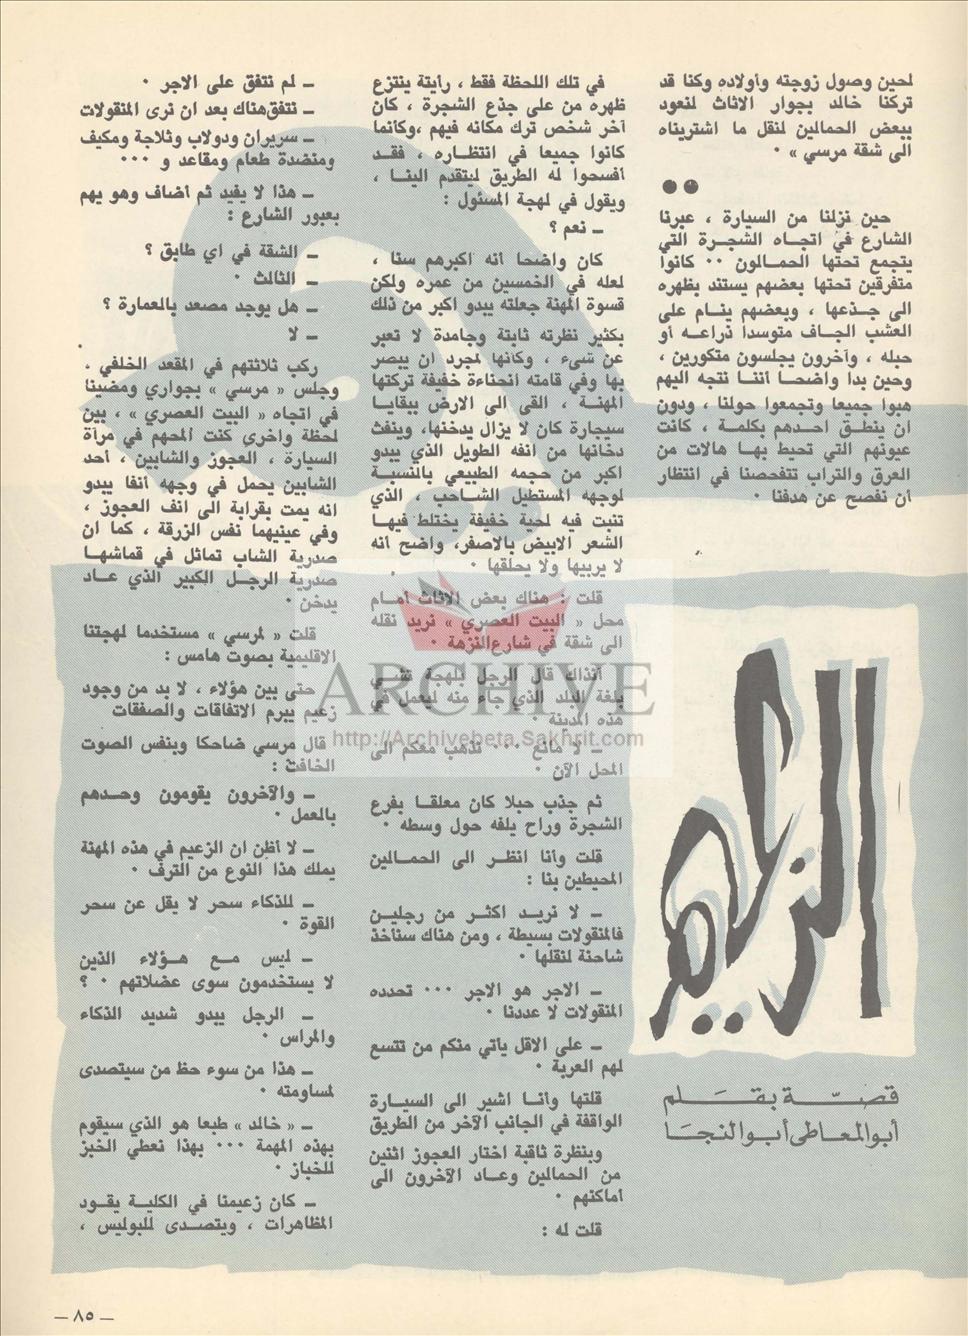 لحين وصول زوجته وأولاده وكنا قد
تركنا خالد بجوار الاثاث لنعود
ببعض الحمالين لنقل ما اشتريناه
الى شقة مرسي » ٠
●●
حين نزلنا من السيارة ، عبرنا
الشارع في اتجاه الشجرة التي
يتجمع تحتها الحمالون ٠٠ كانوا
متفرقين تحتها بعضهم يستند بظهره
الى جذعها ، وبعضهم ينام على
العشب الجاف متوسدا ذراعه أو
حبله ، وآخرون يجلسون متكورين ،
وحين بدا واضحا أننا نتجه اليهم
هبوا جميعا وتجمعوا حولنا ، ودون
ان ينطق احدهم بكلمة ، كانت
عيونهم التي تحيط بها هالات من
العرق والتراب تتفحصنا في انتظار
أن نفصح عن هدفنا ٠
الزعيم
قصة بقلم
أبو المعاطى أبو النجا
في تلك اللحظة فقط ، رأيتة ينتزع
ظهره من على جذع الشجرة ، كان
آخر شخص ترك مكانه فيهم ،وكأنما
كانوا جميعا في انتظاره ، فقد
أفسحوا له الطريق ليتقدم الينا ،
ويقول في لهجة المسئول :
ـ نعم ؟
كان واضحا انه اكبرهم سنا ،
لعله في الخمسين من عمره ولكن
قسوة المهنة جعلته يبدو اكبر من ذلك
بكثير نظرته ثابتة وجامدة لا تعبر
عن شىء ، وكأنها لمجرد ان يبصر
بها وفي قامته انحناءة خفيفة تركتها
المهنة ، القى الى الارض ببقايا
سيجارة كان لا يزال يدخنها، وينفث
دخانها من انفه الطويل الذي يبدو
اكبر من حجمه الطبيعي بالنسبة
لوجهه المستطيل الشاحب ، الذي
تنبت فيه لحية خفيفة يختلط فيها
الشعر الابيض بالاصفر، واضح انه
لا يربيها ولا يحلقها ٠
قلت : هناك بعض الاثاث أمام
محل « البيت العصري » نريد نقله
الى شقة في شارع النزهة ٠
آنذاك قال الرجل بلهجة تشي
بلغة البلد الذي جاء منه ليعمل في
هذه المدينة ٠
ـ لا مانع ٠٠٠ نذهب معكم الى
المحل الآن ٠
ثم جذب حبلا كان معلقا بفرع
الشجرة وراح يلفه حول وسطه ٠
قلت وأنا انظر الى الحمالين
المحيطين بنا :
ـ لا نريد اكثر من رجلين
فالمنقولات بسيطة ، ومن هناك سنأخذ
شاحنة لنقلها ٠
ـ الاجر هو الاجر ٠٠٠ تحدده
المنقولات لا عددنا ٠
ـ على الاقل يأتي منكم من تتسع
لهم العربة ٠
قلتها وأنا اشير الى السيارة
الواقفة في الجانب الآخر من الطريق
وبنظرة ثاقبة اختار العجوز اثنين
من الحمالين وعاد الآخرون الى
أماكنهم ٠
قلت له :
ـ لم نتفق على الاجر ٠
ـ نتفق هناك بعد ان نرى المنقولات
ـ سريران ودولاب وثلاجة ومكيف
ومنضدة طعام ومقاعد و ٠٠٠
ـ هذا لا يفيد ثم أضاف وهو يهم
بعبور الشارع :
ـ الشقة في اي طابق ؟
ـ الثالث ٠
ـ هل يوجد مصعد بالعمارة ؟
ـ لا ٠
ركب ثلاثتهم في المقعد الخلفي ،
وجلس « مرسي » بجواري ومضينا
في اتجاه « البيت العصري » ، بين
لحظة واخرى كنت ألمحهم في مرآة
السيارة ، العجوز والشابين ، أحد
الشابين يحمل في وجهه أنفا يبدو
انه يمت بقرابة الى انف العجوز ،
وفي عينيهما نفس الزرقة ، كما ان
صدرية الشاب تماثل في قماشها
صدرية الرجل الكبير الذي عاد
يدخن ٠
قلت « لمرسي » مستخدما لهجتنا
الاقليمية بصوت هامس :
حتى بين هؤلاء ، لا بد من وجود
زعيم يبرم الاتفاقات والصفقات
قال مرسي ضاحكا وبنفس الصوت
الخافت :
ـ والآخرون يقومون وحدهم
بالعمل ٠
ـ لا أظن ان الزعيم في هذه المهنة
يملك هذا النوع من الترف ٠
ـ للذكاء سحر لا يقل عن سحر
القوة ٠
ـ ليس مع هؤلاء الذين
لا يستخدمون سوى عضلاتهم ٠ ؟
ـ الرجل يبدو شديد الذكاء
والمراس ٠
ـ هذا من سوء حظ من سيتصدى
لمساومته ٠
ـ « خالد » طبعا هو الذي سيقوم
بهذه المهمة ٠٠٠ بهذا نعطي الخبز
للخباز ٠
ـ كان زعيمنا في الكلية يقود
المظاهرات ، ويتصدى للبوليس ،
ARCHIVE
http://Archivebeta.Sakhrit.com
ـ ٨٥ ـ